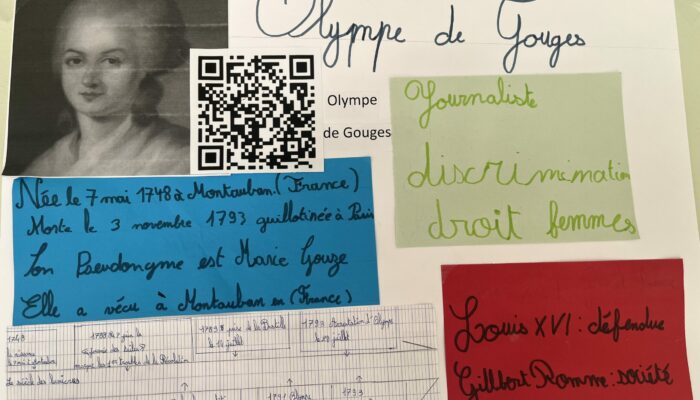 Olympe de Gouges
Olympe
de Gouges
Journaliste
discrimination
droit femmes
Née le 7 mai 1748 à Montauban. (France)
Morte le 3 novembre 1793 guillotinée à Paris
Son Pseudongme est Marie Gouze
Elle a vécu à Montauban en (France)
Louis XVI : défendue
Gillbert Romme : société
1748
1789 prise de la Bastille
le 14 juillet
1793 Arrestation d'Olympe
le siècle des lumières
1791 Olympe
1793